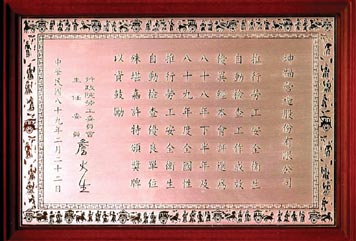 推行勞工安全衛生
自動檢查工作成效
優異經本會評選為
八十八年下半年及
八十九年度全國性
推行勞工安全衛生
自動檢查優良單位
殊堪嘉許特頒獎牌
以資鼓勵
行政院勞工委員會
主任委員
中華民國八十九年二月二十二日